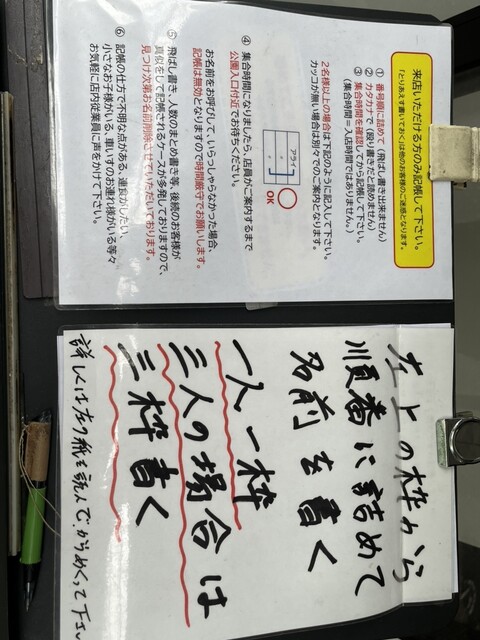 来店いただける方のみ記帳して下さい。
「とりあえず書いておく」は他のお客様のご迷惑となります。
① 番号順に詰めて（飛ばし書き出来ません）
② カタカナで（殴り書きだと読めません）
③ 集合時間を確認してから記帳して下さい。
（集合時間＝入店時間ではありません。）
2名様以上の場合は下記のように記入して下さい。
カッコが無い場合は別々でのご案内となります。
アライ
OK
④ 集合時間になりましたら、店員がご案内するまで
公園入口付近でお待ちください。
お名前をお呼びして、いらっしゃらなかった場合、
記帳は無効となりますので時間厳守でお願いします。
⑤ 飛ばし書き、人数のまとめ書き等、後続のお客様が
真似をして記帳されるケースが多発しておりますので、
見つけ次第お名前削除させていただいております。
⑥ 記帳の仕方で不明な点がある、連泊がしたい、
小さなお子様がいる、車いすのお連れ様がいる等々
お気軽に店内従業員に声をかけて下さい。
左上の枠から
順番に詰めて
名前を書く
一人一枠
三人の場合は
三枠書く
詳しくは左の紙を読んでからめくって下さい